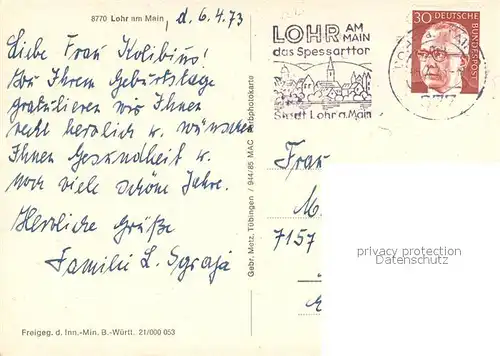 8770 Lohr am Main, d. 6.4.73
Liebe Frau Kolibius!
Ihrem Geburtstage
gratulieren wir Ihnen
recht herzlich u. wünschen
Ihnen Gesundheit u.
noch viele schöne Jahre.
Herzliche Grüße
Familie L. Sgraja
Freigeg. d. Inn.-Min. B.-Württ. 21/000 053
Gebr. Metz, Tübingen / 944/85 MAC Farbphotokarte
LOHR AM MAIN
das Spessarttor
Stadt Lohr a. Main
30 DEUTSCHE BUNDESPOST
877
Frau
M.
7157
privacy protection
Datenschutz